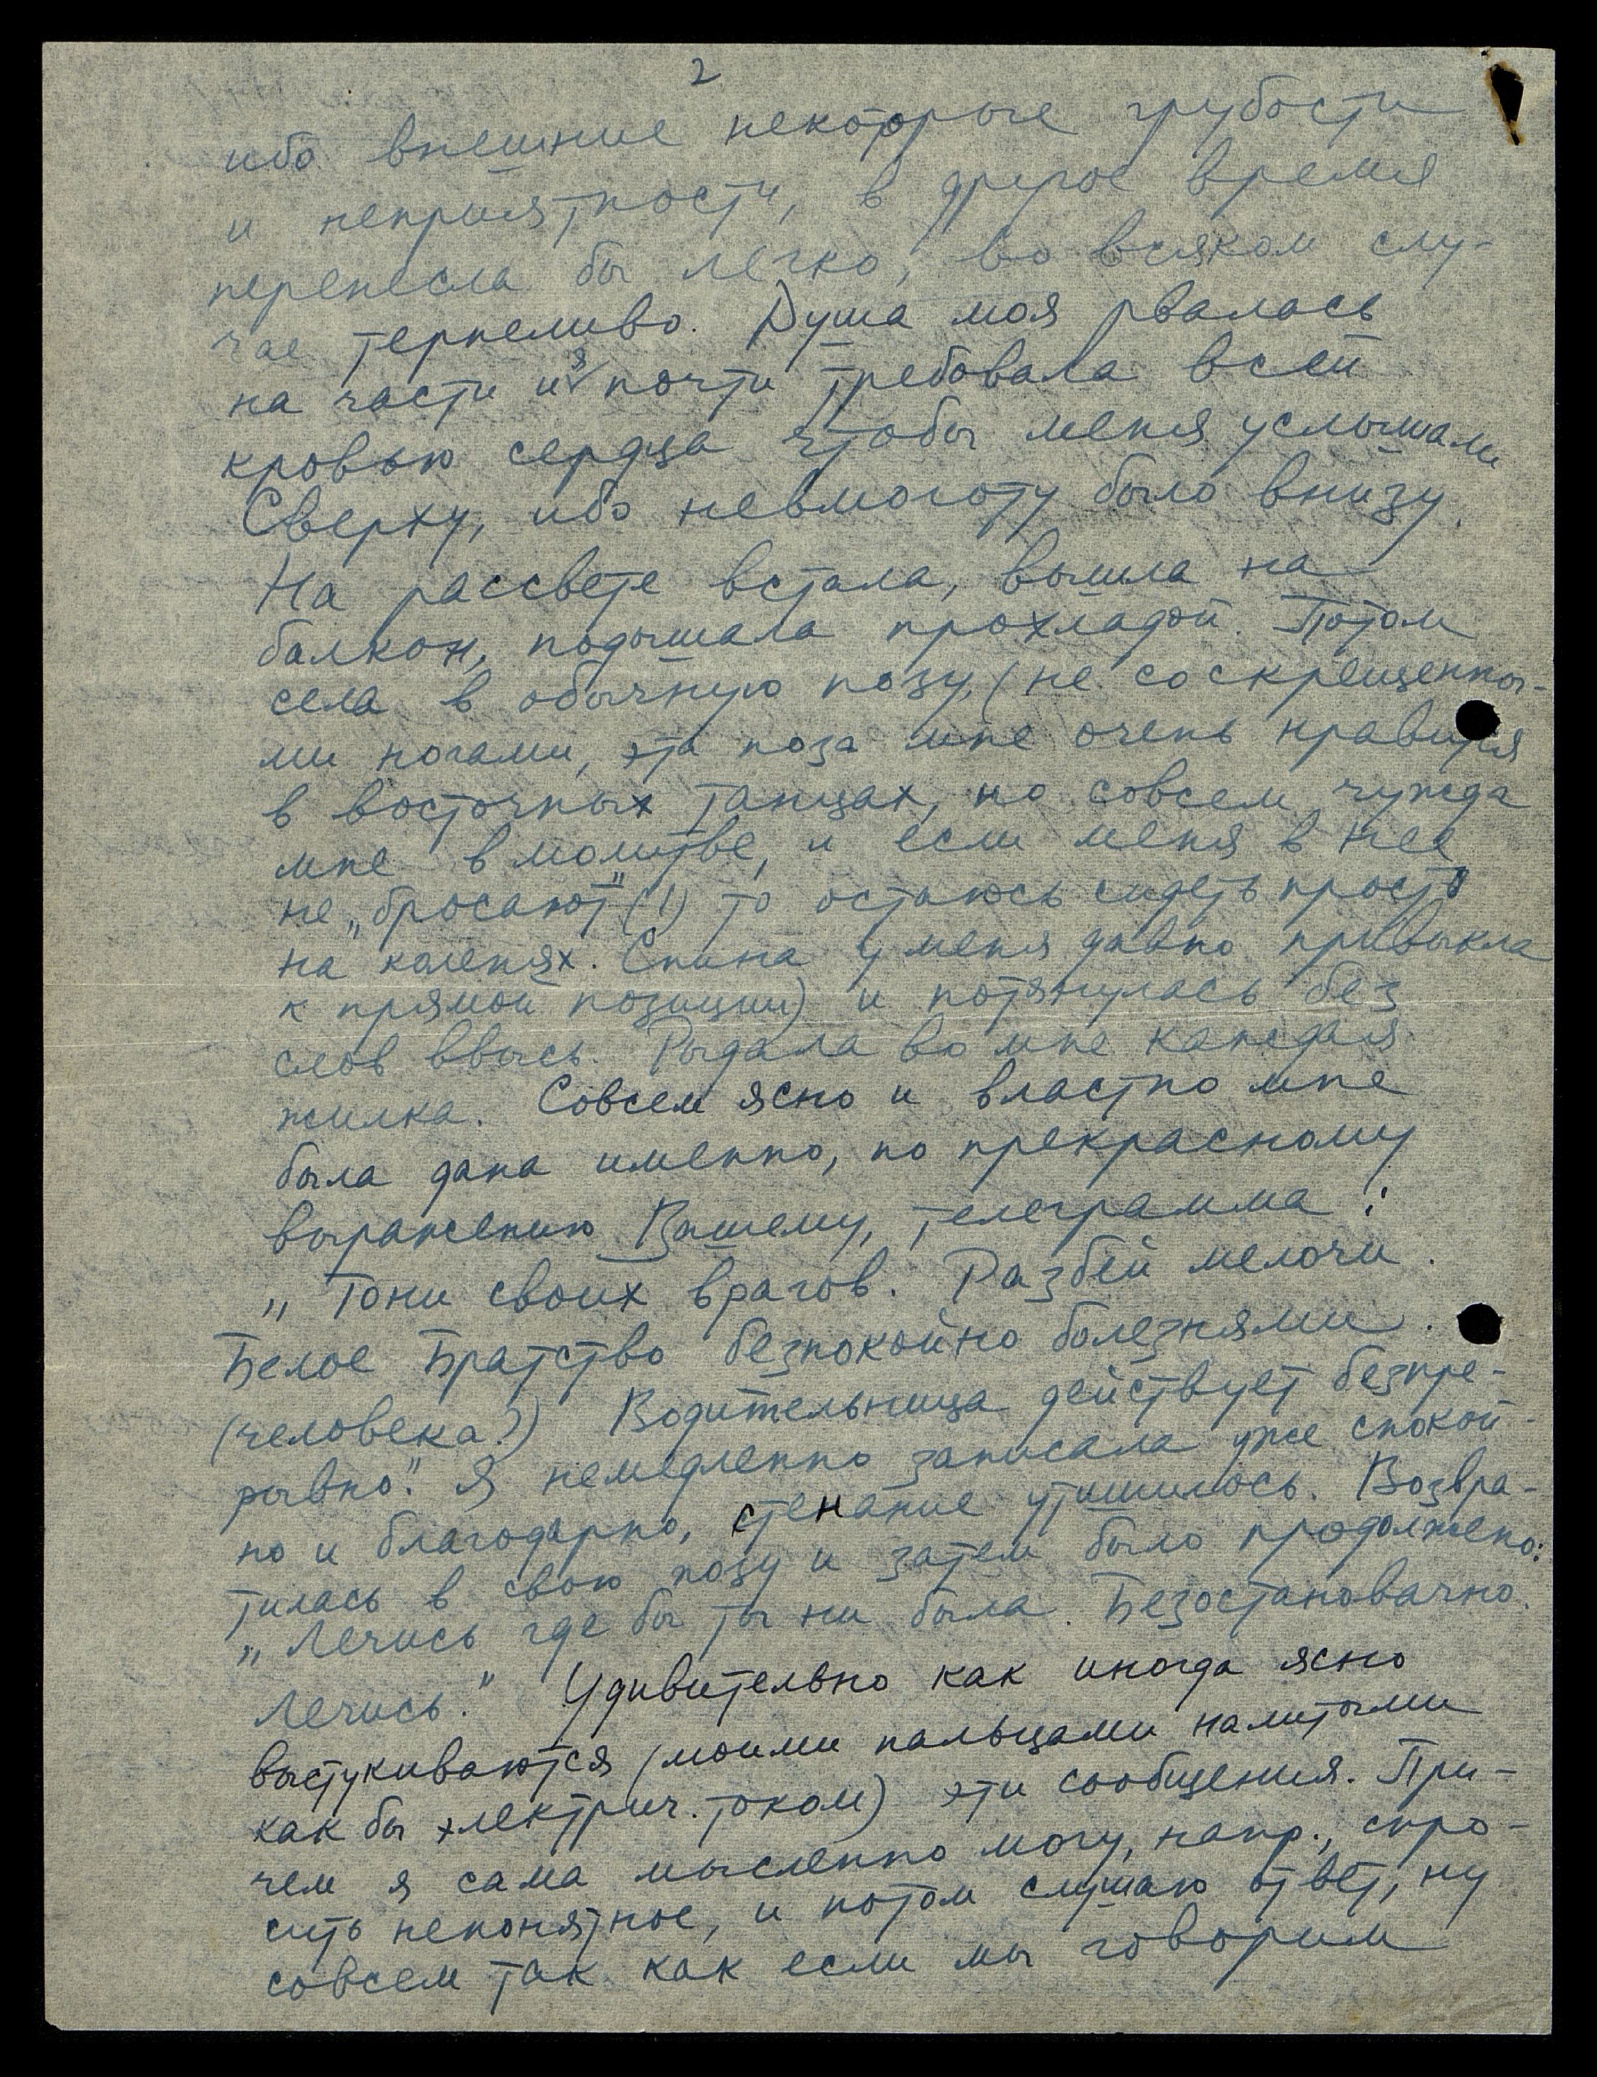 2
ибо внешние некоторые грубости
и неприятности, в другое время
перенесла бы легко, во всяком слу-
чае терпеливо. Душа моя рвалась
на части и я почти требовала всей
кровью сердца чтобы меня услышали
Сверху, ибо невмоготу было внизу.
На рассвете встала, вышла на
балкон, подышала прохладой. Потом
села в обычную позу, (не со скрещенны-
ми ногами, эта поза мне очень нравится
в восточных танцах, но совсем чужда
мне в молитве, и если меня в нее
не „бросают" (!) то остаюсь сидеть просто
на коленях. Спина у меня давно привыкла
к прямой позиции) и потянулась без
слов ввысь. Рыдала во мне каждая
жилка. Совсем ясно и властно мне
была дана именно, по прекрасному
выражению Вашему, телеграмма:
„Гони своих врагов. Разбей мелочи.
Белое Братство безпокойно болезнями.
(человека?) Водительница действует безпре-
рывно". Я немедленно записала уже спокой-
но и благодарно, стенание утишилось. Возвра-
тилась в свою позу и затем было продолжено:
„Лечись где бы ты ни была. Безостановачно
лечись." Удивительно как иногда ясно
выстукиваются (моими пальцами налитыми
как бы электрич. током) эти сообщения. При-
чем я сама мысленно могу, напр., спро-
сить непонятное, и потом слушаю ответ, ну
совсем так как если мы говорим